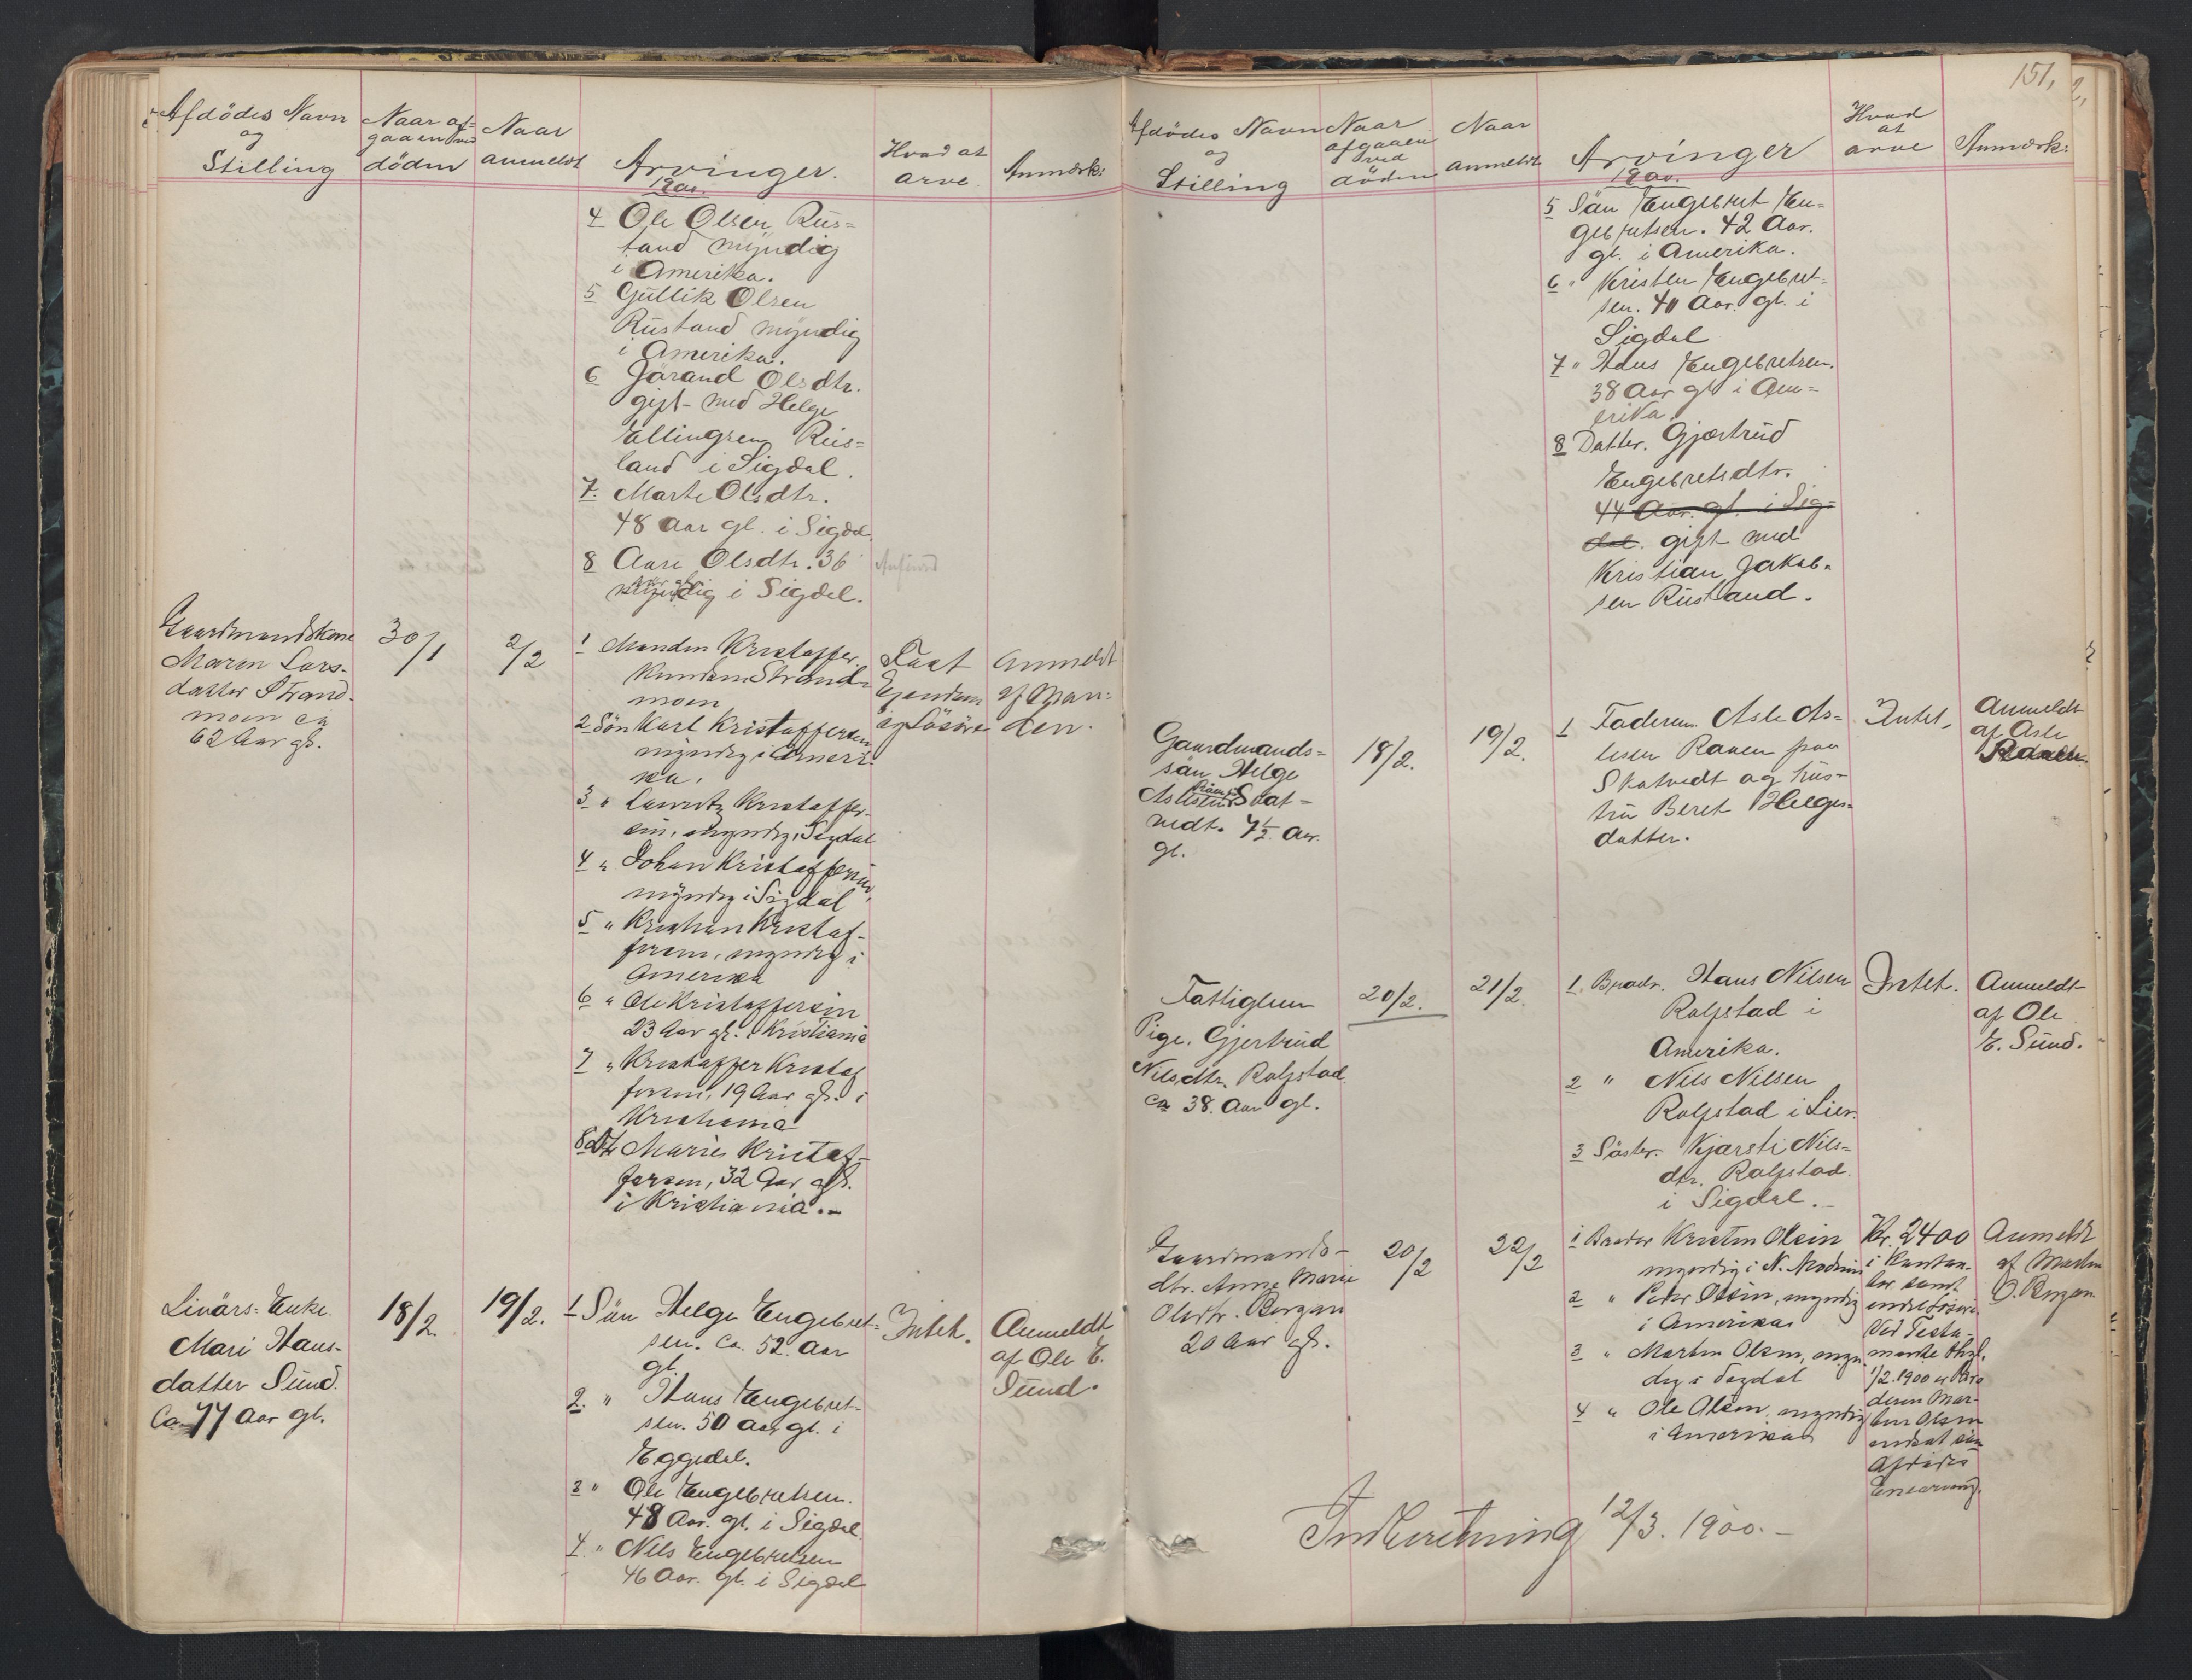 Afdödes Navn
og
Stilling
Naar af=
gaaen ved
döden
Naar
anmeldt
Arvinger.
Hvad at
arve
Anmærk:
1900.
4 Ole Olsen Rus=
tand myndig
i Amerika.
5 Gullik Olsen
Rustand myndig
i Amerika.
6 Jörand Olsdtr.
gift med Helge
Ellingsen Rus=
tand i Sigdal.
7. Marte Olsdtr.
48 Aar gl. i Sigdal.
8 Aase Olsdtr. 36
Aar gl.
myndig i Sigdal.
Gaardmandskone
Maren Lars-
datter Strand-
moen ca
62 Aar gl.
30/1
2/2
1 Manden Kristoffer
Knudsen Strand-
moen
2 Sön Karl Kristoffersen
myndig i Ameri-
ka.
3 " Lauritz Kristoffer-
sen, myndig i Sigdal
4 " Johan Kristoffersen,
myndig i Sigdal
5 " Kristian Kristof-
fersen, myndig i
Amerika
6 " Ole Kristoffersen
23 Aar gl. i Kristiania
7 " Kristoffer Kristof
fersen, 19 Aar gl. i
Kristiania
8 Dtr Marie Kristof-
fersen, 32 Aar gl.
i Kristiania.-
Fast
Eiendom
og Lösöre
Anmeldt
af Man-
den.
Livörs= Enke
Mari Hans-
datter Sund.
Ca 77 Aar gl.
18/2.
19/2.
1 Sön Helge Engebret-
sen. Ca. 52. Aar
gl.
2. " Hans Engebret-
sen. 50 Aar gl. i
Eggedal.
3 " Ole Engebretsen.
48 Aar. gl. i Sigdal.
4. " Nils Engebretsen
46 Aar. gl. i Sigdal
Intet.
Anmeldt
af Ole E.
Sund.
151.
Afdödes Navn
og
Stilling
Naar
afgaaen
ved
döden
Naar
anmeldt
Arvinger
Hvad
at
arve
Anmærk:
1900.
5 Sön Engebret En=
gebretsen. 42 Aar.
gl. i Amerika.
6 " Kristen Engebret-
sen. 40 Aar gl. i
Sigdal
7 " Hans Engebretsen.
38 Aar gl i Am=
erika.
8 Datter. Gjertrud
Engebretsdtr.
44 Aar. gl. i Sig=
dal. gift med
Kristian Jakob-
sen Rustand.
Gaardmands=
sön Helge
Aslesen Skat-
vedt. 7½ Aar.
gl.
18/2.
19/2.
1 Faderen Asle As=
lesen Raaen paa
Skatvedt og hus-
tru Beret Helges-
datter.
Intet,
Anmeldt
af Asle
Raaen.
Fattiglem
Pige. Gjertrud
Nilsdtr. Rolfstad
ca 38. Aar gl.
20/2.
21/2.
1. Broder. Hans Nilsen
Rolfstad i
Amerika.
2 " Nils Nilsen
Rolfstad i Lier.
3 Söster. Kjersti Nils=
dtr. Rolfstad.
i Sigdal.-
Intet.
Anmeldt
af Ole
E. Sund.
Gaardmands-
dtr. Anne Marie
Olsdtr. Borgan
20 Aar gl.
20/2
22/2
1 Broder Kristen Olsen
myndig i N. Modum
2 " Peder Olsen, myndig
i Amerika
3 " Martin Olsen, myn-
dig i Sigdal
4 " Ole Olsen, myndig
i Amerika
Kr. 2400
i Kontan-
ter samt
endel Lösöre.
Ved Testa-
mente
1/2 1900 er Bro
deren Mar-
tin Olsen
indsat som
Afdödes
Enearving.
Anmeldt
af Martin
O. Borgan
Indberetning 12/3. 1900.-